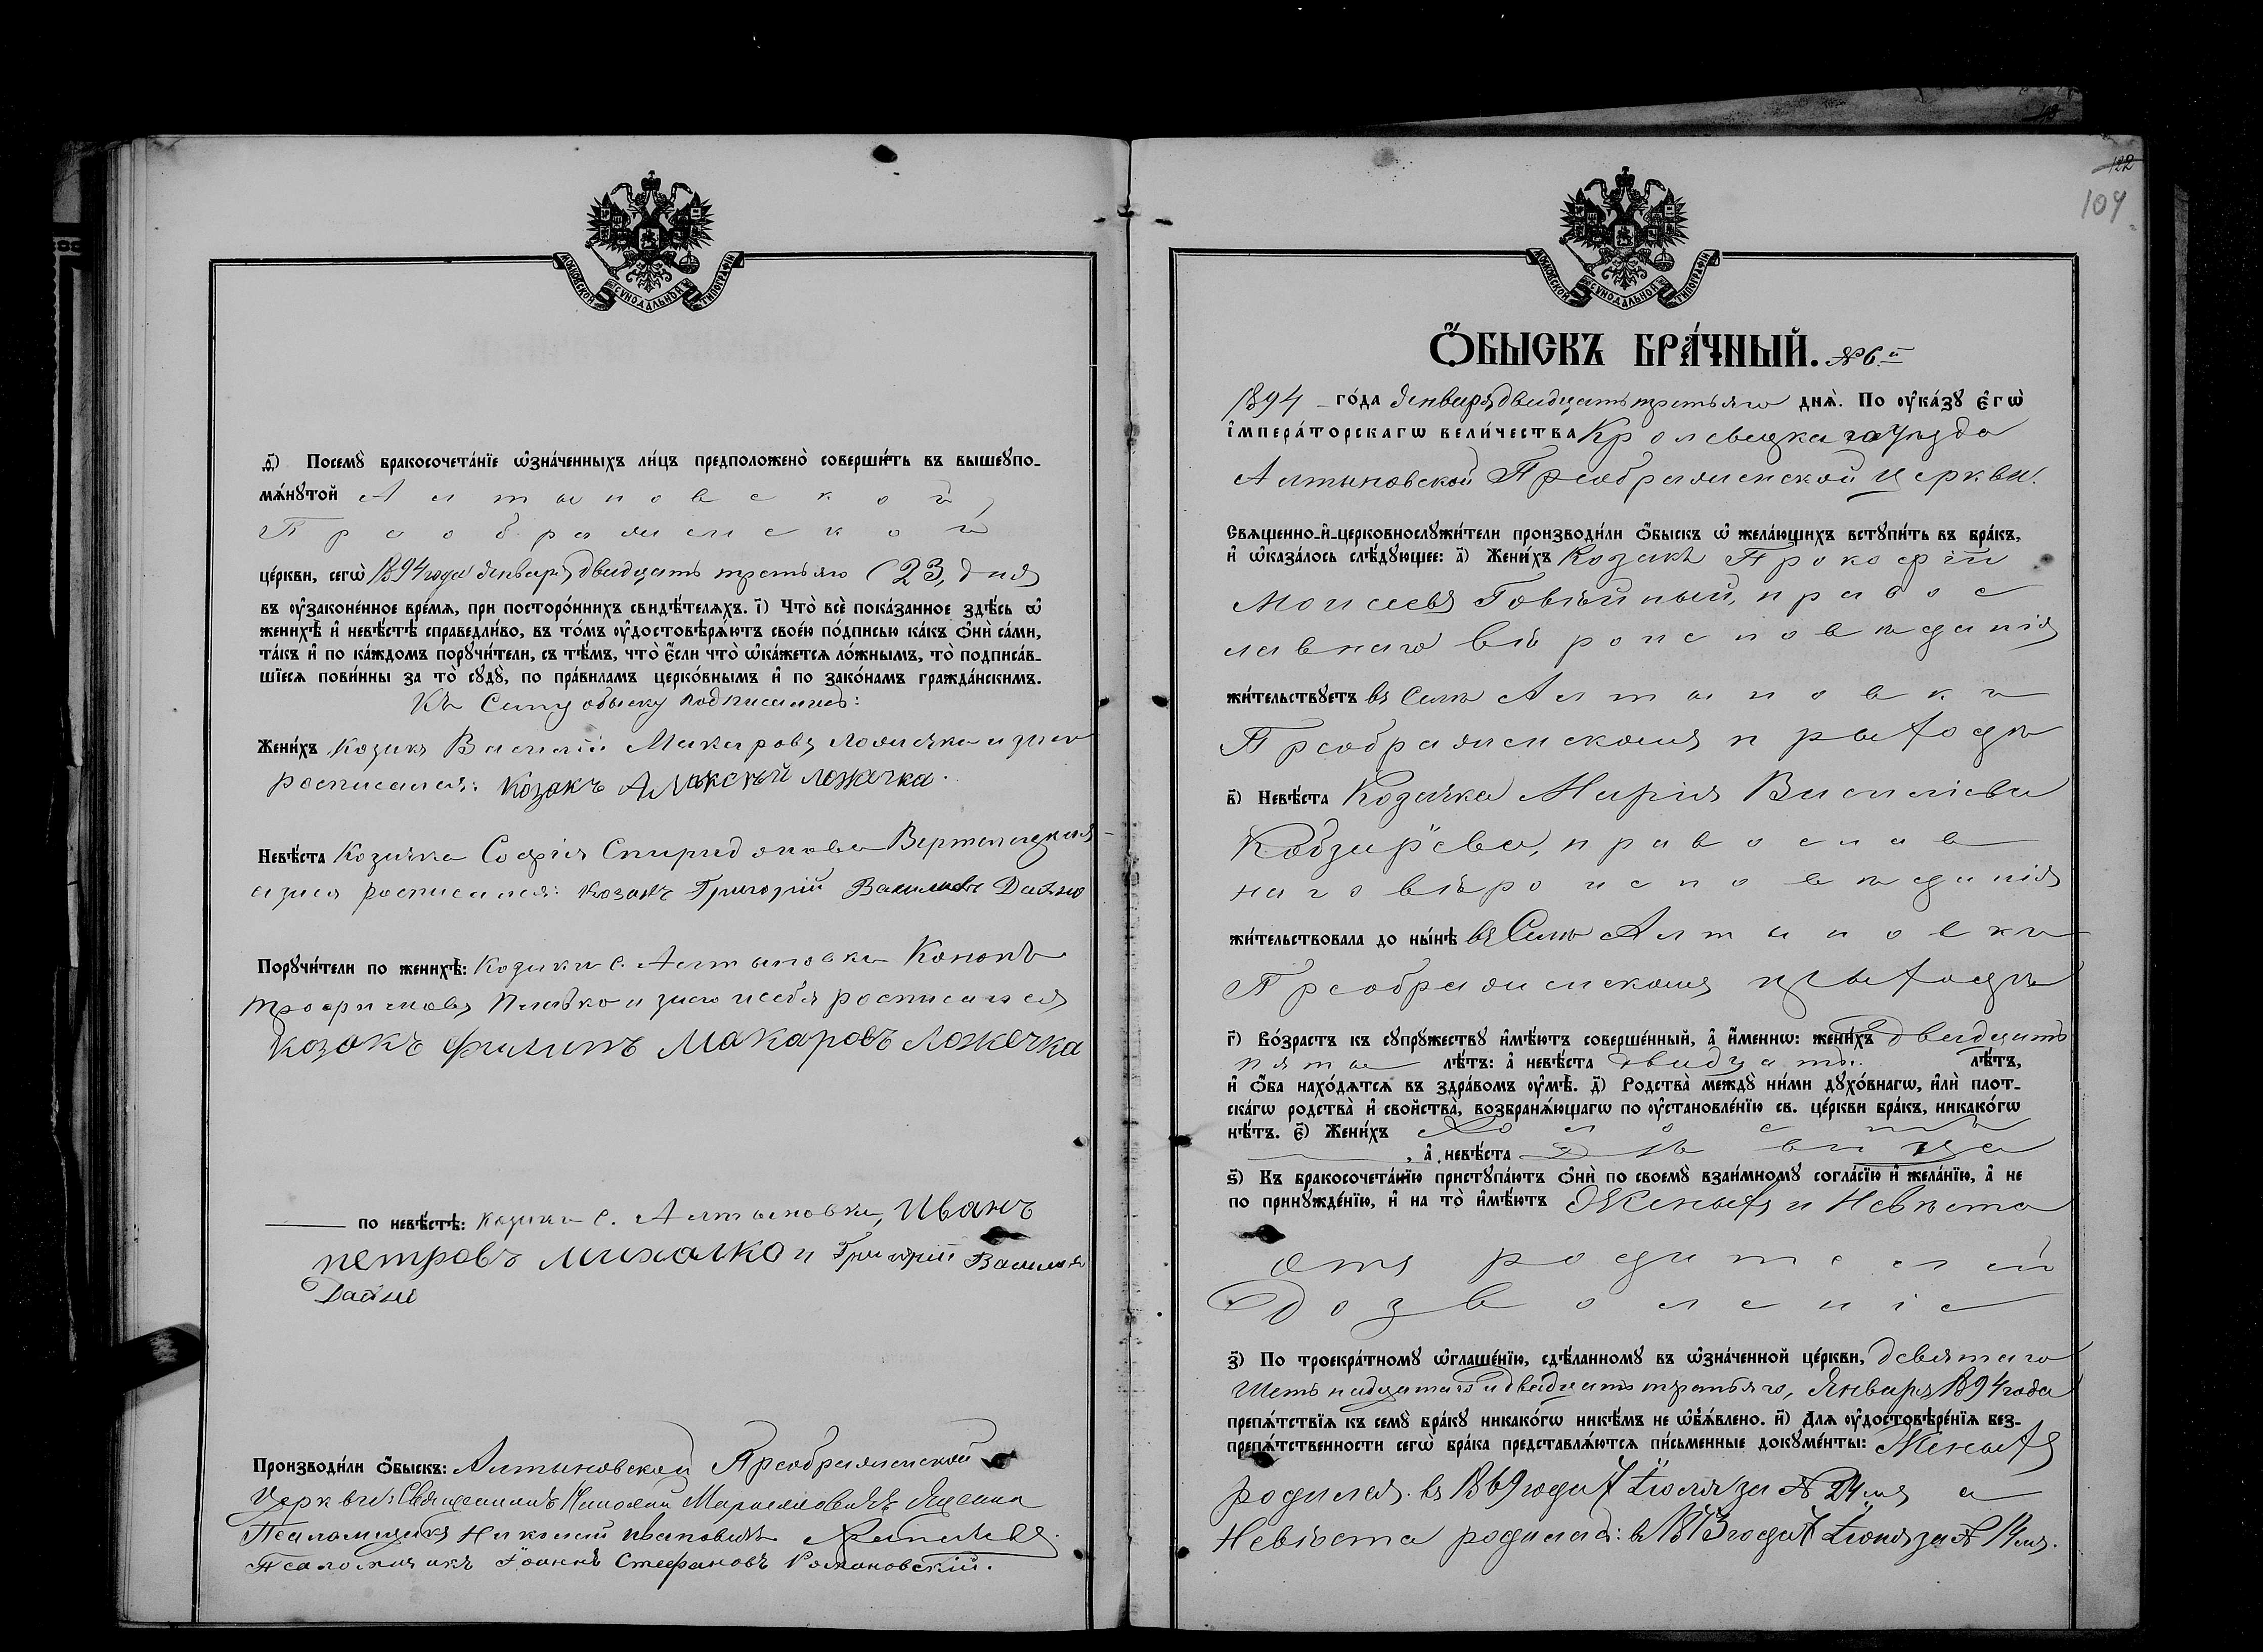 МОСКОВСКОЙ СѴНОДАЛЬНОЙ ТИПОГРАФІИ
д҃і) Посемꙋ̀ бракосочета́нїе ѡ҆зна́ченныхъ ли́цъ предположено̀ соверши́ть въ вышеꙋпо-
мѧ́нꙋтой Алтыновской
Преображенской
це́ркви, сегѡ̀ 1894 года Января двадцать третьяго (23) дня
въ ᲂу҆законе́нное вре́мѧ, при посторо́ннихъ свидѣ́телѧхъ. і҃) Что̀ всѐ пока́занное здѣ́сь ѡ҆
женихѣ̀ и҆ невѣ́стѣ справедли́во, въ то́мъ ᲂу҆достовѣрѧ́ютъ свое́ю по́дписью ка́къ ѻ҆нѝ са́ми,
та́къ и҆ по ка́ждомъ порꙋчи́тели, съ тѣ́мъ, что̀ є҆́сли что̀ ѡ҆ка́жетсѧ ло́жнымъ, то̀ подписа́в-
шїесѧ пови́нны за то̀ сꙋдꙋ̀, по пра́виламъ церко́внымъ и҆ по зако́намъ гражда́нскимъ.
Къ сему обыску подписались:
Жени́хъ Козакъ Василій Макаровъ Ложечка а за него
росписался: Козакъ Алексѣй Ложечка.
Невѣ́ста Козачка Софія Спиридонова
а за нея росписался: Козакъ Григорій Васильевъ Дайно
Порꙋчи́тели по женихѣ̀: Козаки с. Алтыновки Кононъ
Трофимовъ и за него и себя росписался
козакъ Филипъ Макаровъ Ложечка
по невѣ́стѣ: козаки с. Алтыновки, Иванъ
петровъ михалко и Григорій Васильевъ
Дайно
Производи́ли ѻ҆́быскъ: Алтыновской Преображенской
Церкви: Священникъ Николай
Псаломщикъ Николай Ивановичъ
Псаломщикъ Іоаннъ Стефановъ Романовскій.
122
104
МОСКОВСКОЙ СѴНОДАЛЬНОЙ ТИПОГРАФІИ
Ѻ҆́БЫСКЪ БРА́ЧНЫЙ. №6.й
1894 го́да Января двадцать третьяго днѧ̀. По ᲂу҆ка́зꙋ є҆гѡ̀
і҆мпера́торскагѡ вели́чества Кролевецкаго уѣзда
Алтыновской Преображенской церкви.
Свѧщенно-и҆-церковнослꙋжи́тели производи́ли ѻ҆́быскъ ѡ҆ жела́ющихъ встꙋпи́ть въ бра́къ,
и҆ ѡ҆каза́лось слѣ́дꙋющее: а҃) Жени́хъ Козакъ Прокофій
Моисеевъ Говѣйный, право с
лавнаго вѣроисповѣданія
жи́тельствꙋетъ въ Селѣ Алтыновкѣ
Преображенскомъ приходѣ
в҃) Невѣ́ста Козачка Марія Васильева
Кобзарева, православ
наго вѣроисповѣданія
жи́тельствовала до ны́нѣ въ Селѣ Алтыновкѣ
Преображенскомъ приходѣ
г҃) Во́зрастъ къ сꙋпрꙋ́жествꙋ и҆мѣ́ютъ соверше́нный, а҆ и҆́меннѡ: жени́хъ двадцать
пять лѣ́тъ: а҆ невѣ́ста двадцать лѣ́тъ,
и҆ ѻ҆́ба нахо́дѧтсѧ въ здра́вомъ ᲂу҆мѣ̀. д҃) Родства̀ междꙋ̀ ни́ми дꙋхо́внагѡ, и҆лѝ плот-
ска́гѡ родства̀ и҆ свойства̀, возбранѧ́ющагѡ по ᲂу҆становле́нїю св. це́ркви бра́къ, никако́гѡ
нѣ́тъ. є҃) Жени́хъ холостъ
, а҆ невѣ́ста дѣвица
ѕ҃) Къ бракосочета́нїю пристꙋпа́ютъ ѻ҆нѝ по своемꙋ̀ взаи́мномꙋ согла́сїю и҆ жела́нїю, а҆ не
по принꙋжде́нїю, и҆ на то̀ и҆мѣ́ютъ Женихъ и Невѣста
отъ родителей
дозволеніе
з҃) По троекра́тномꙋ ѡ҆глаше́нїю, сдѣ́ланномꙋ въ ѡ҆зна́ченной це́ркви, девятаго
Шестьнадцатаго и двадцать третьяго, Января 1894 года
препѧ́тствїѧ къ семꙋ̀ бра́кꙋ никако́гѡ никѣ́мъ не ѡ҆б̾ѧ́влено. и҃) Длѧ ᲂу҆достовѣре́нїѧ без-
препѧ́тственности сегѡ̀ бра́ка представлѧ́ютсѧ пи́сьменные докꙋме́нты: Женихъ
родился: въ 1869 года 7 Іюля за № 24 мъ а
Невѣста родилась: въ 1873 года 7 Іюня за № 19 мъ.